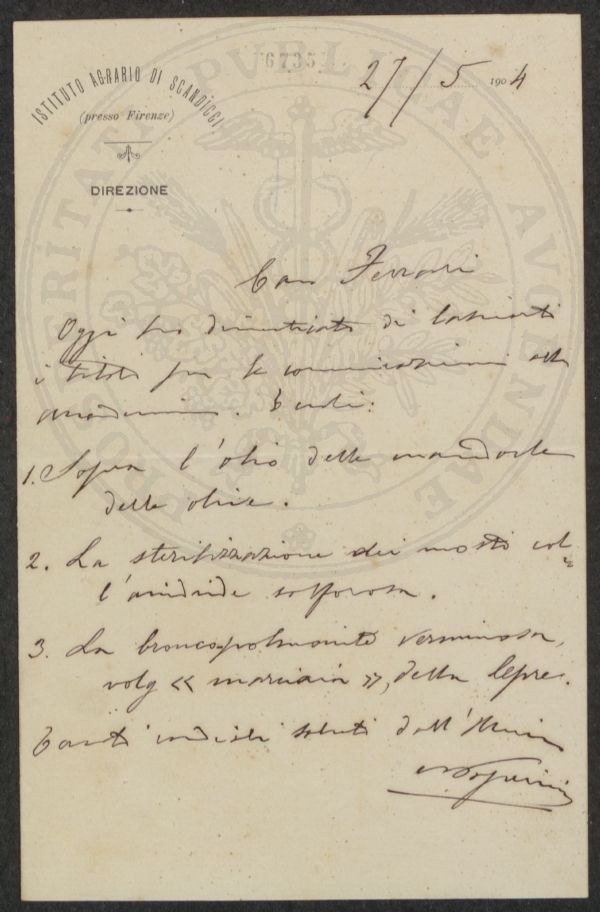 6735
ISTITUTO AGRARIO DI SCANDICCI
(presso Firenze)
DIREZIONE
27/5 1904
POSTERITATI PVBLICAE AVQENDAE
Caro Ferrari
Oggi ho dimenticato di lasciarti
i titoli per le comunicazioni alla
Accademia. Eccoli:
1. Sopra l'olio delle mandorle
delle olive.
2. La sterilizzazione dei mosti col-
l'anidride solforosa.
3. La broncopolmonite verminosa,
volg « marciaia », della lepre.
Tanti cordiali saluti dall'